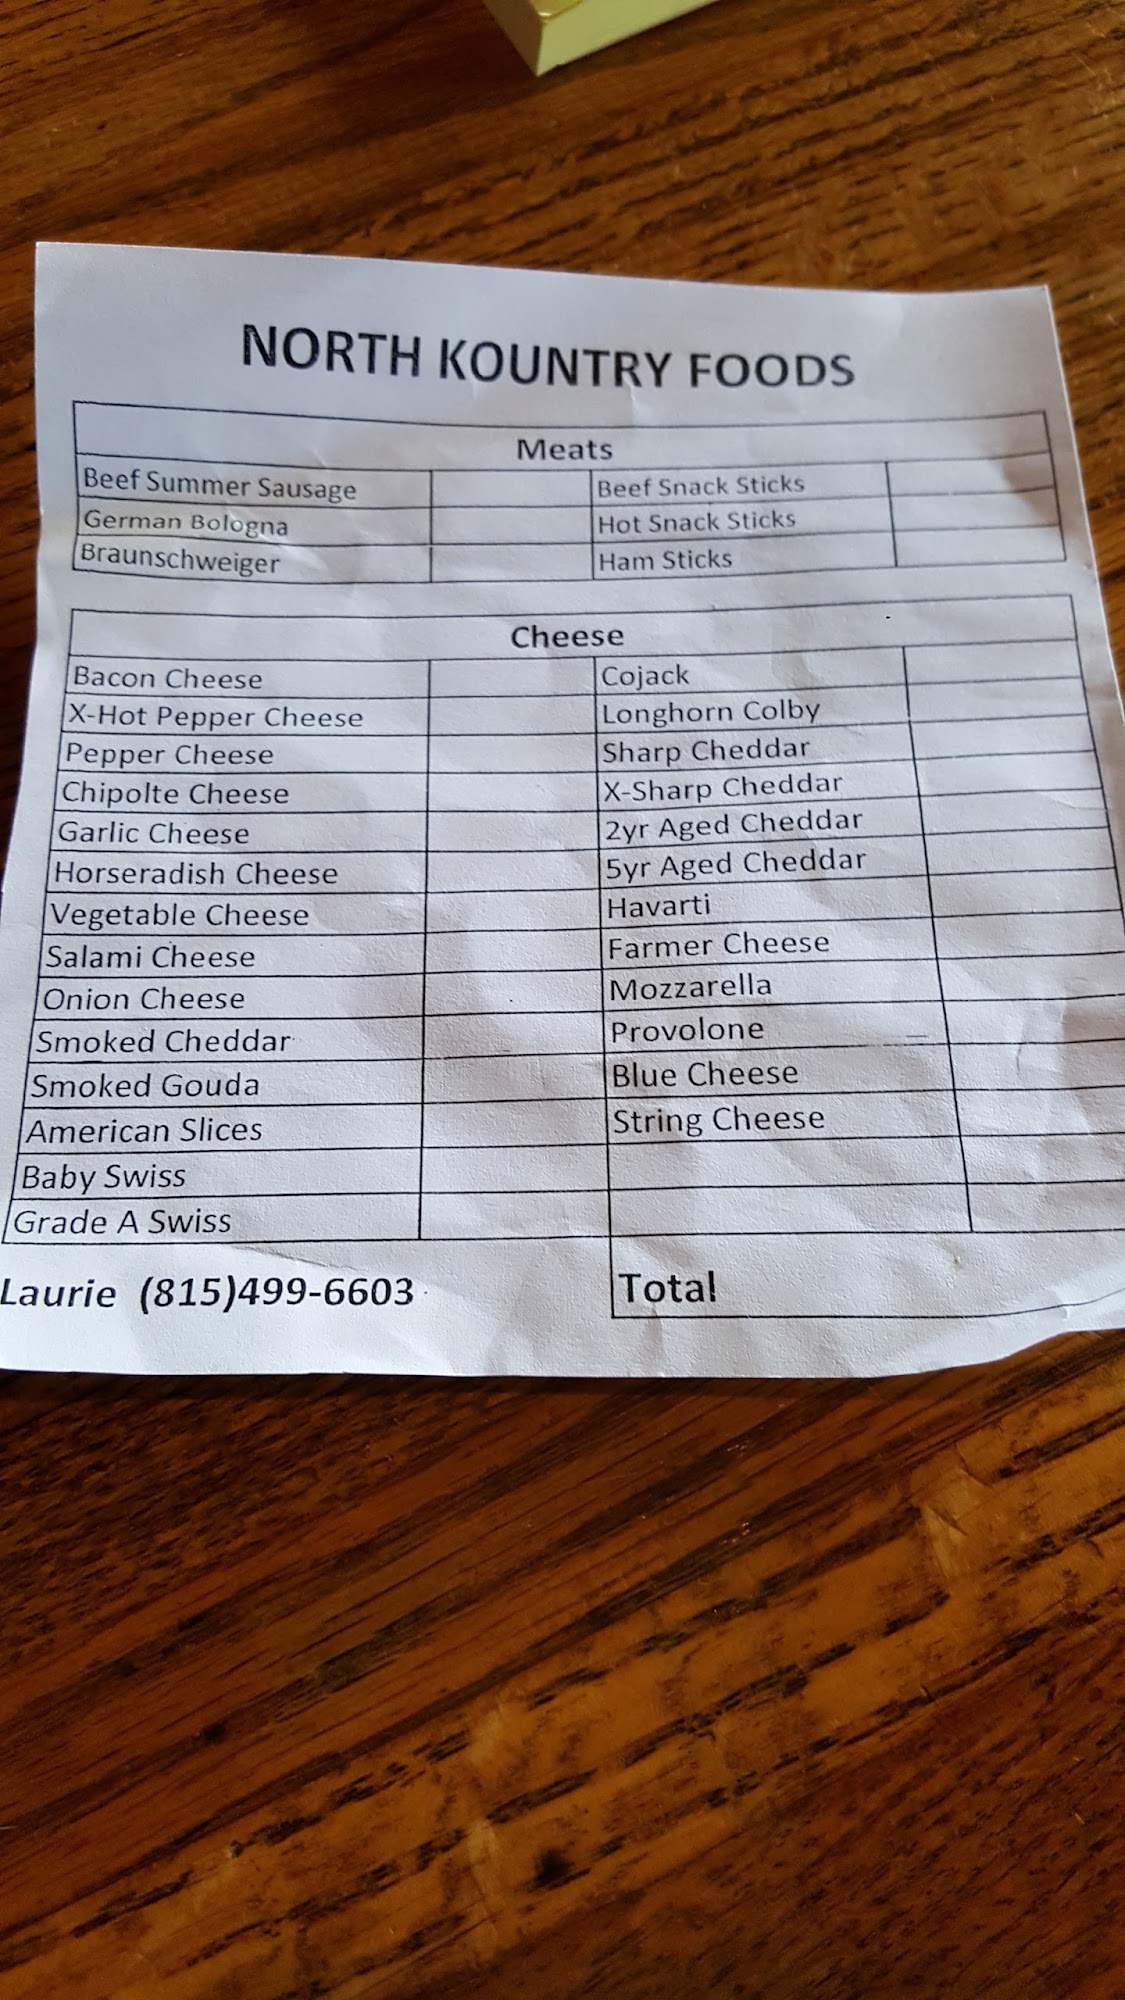 NORTH KOUNTRY FOODS
Meats
Beef Summer Sausage Beef Snack Sticks
German Bologna Hot Snack Sticks
Braunschweiger Ham Sticks
Cheese
Bacon Cheese Cojack
X-Hot Pepper Cheese Longhorn Colby
Pepper Cheese Sharp Cheddar
Chipolte Cheese X-Sharp Cheddar
Garlic Cheese 2yr Aged Cheddar
Horseradish Cheese 5yr Aged Cheddar
Vegetable Cheese Havarti
Salami Cheese Farmer Cheese
Onion Cheese Mozzarella
Smoked Cheddar Provolone
Smoked Gouda Blue Cheese
American Slices String Cheese
Baby Swiss
Grade A Swiss
Laurie (815)499-6603 Total